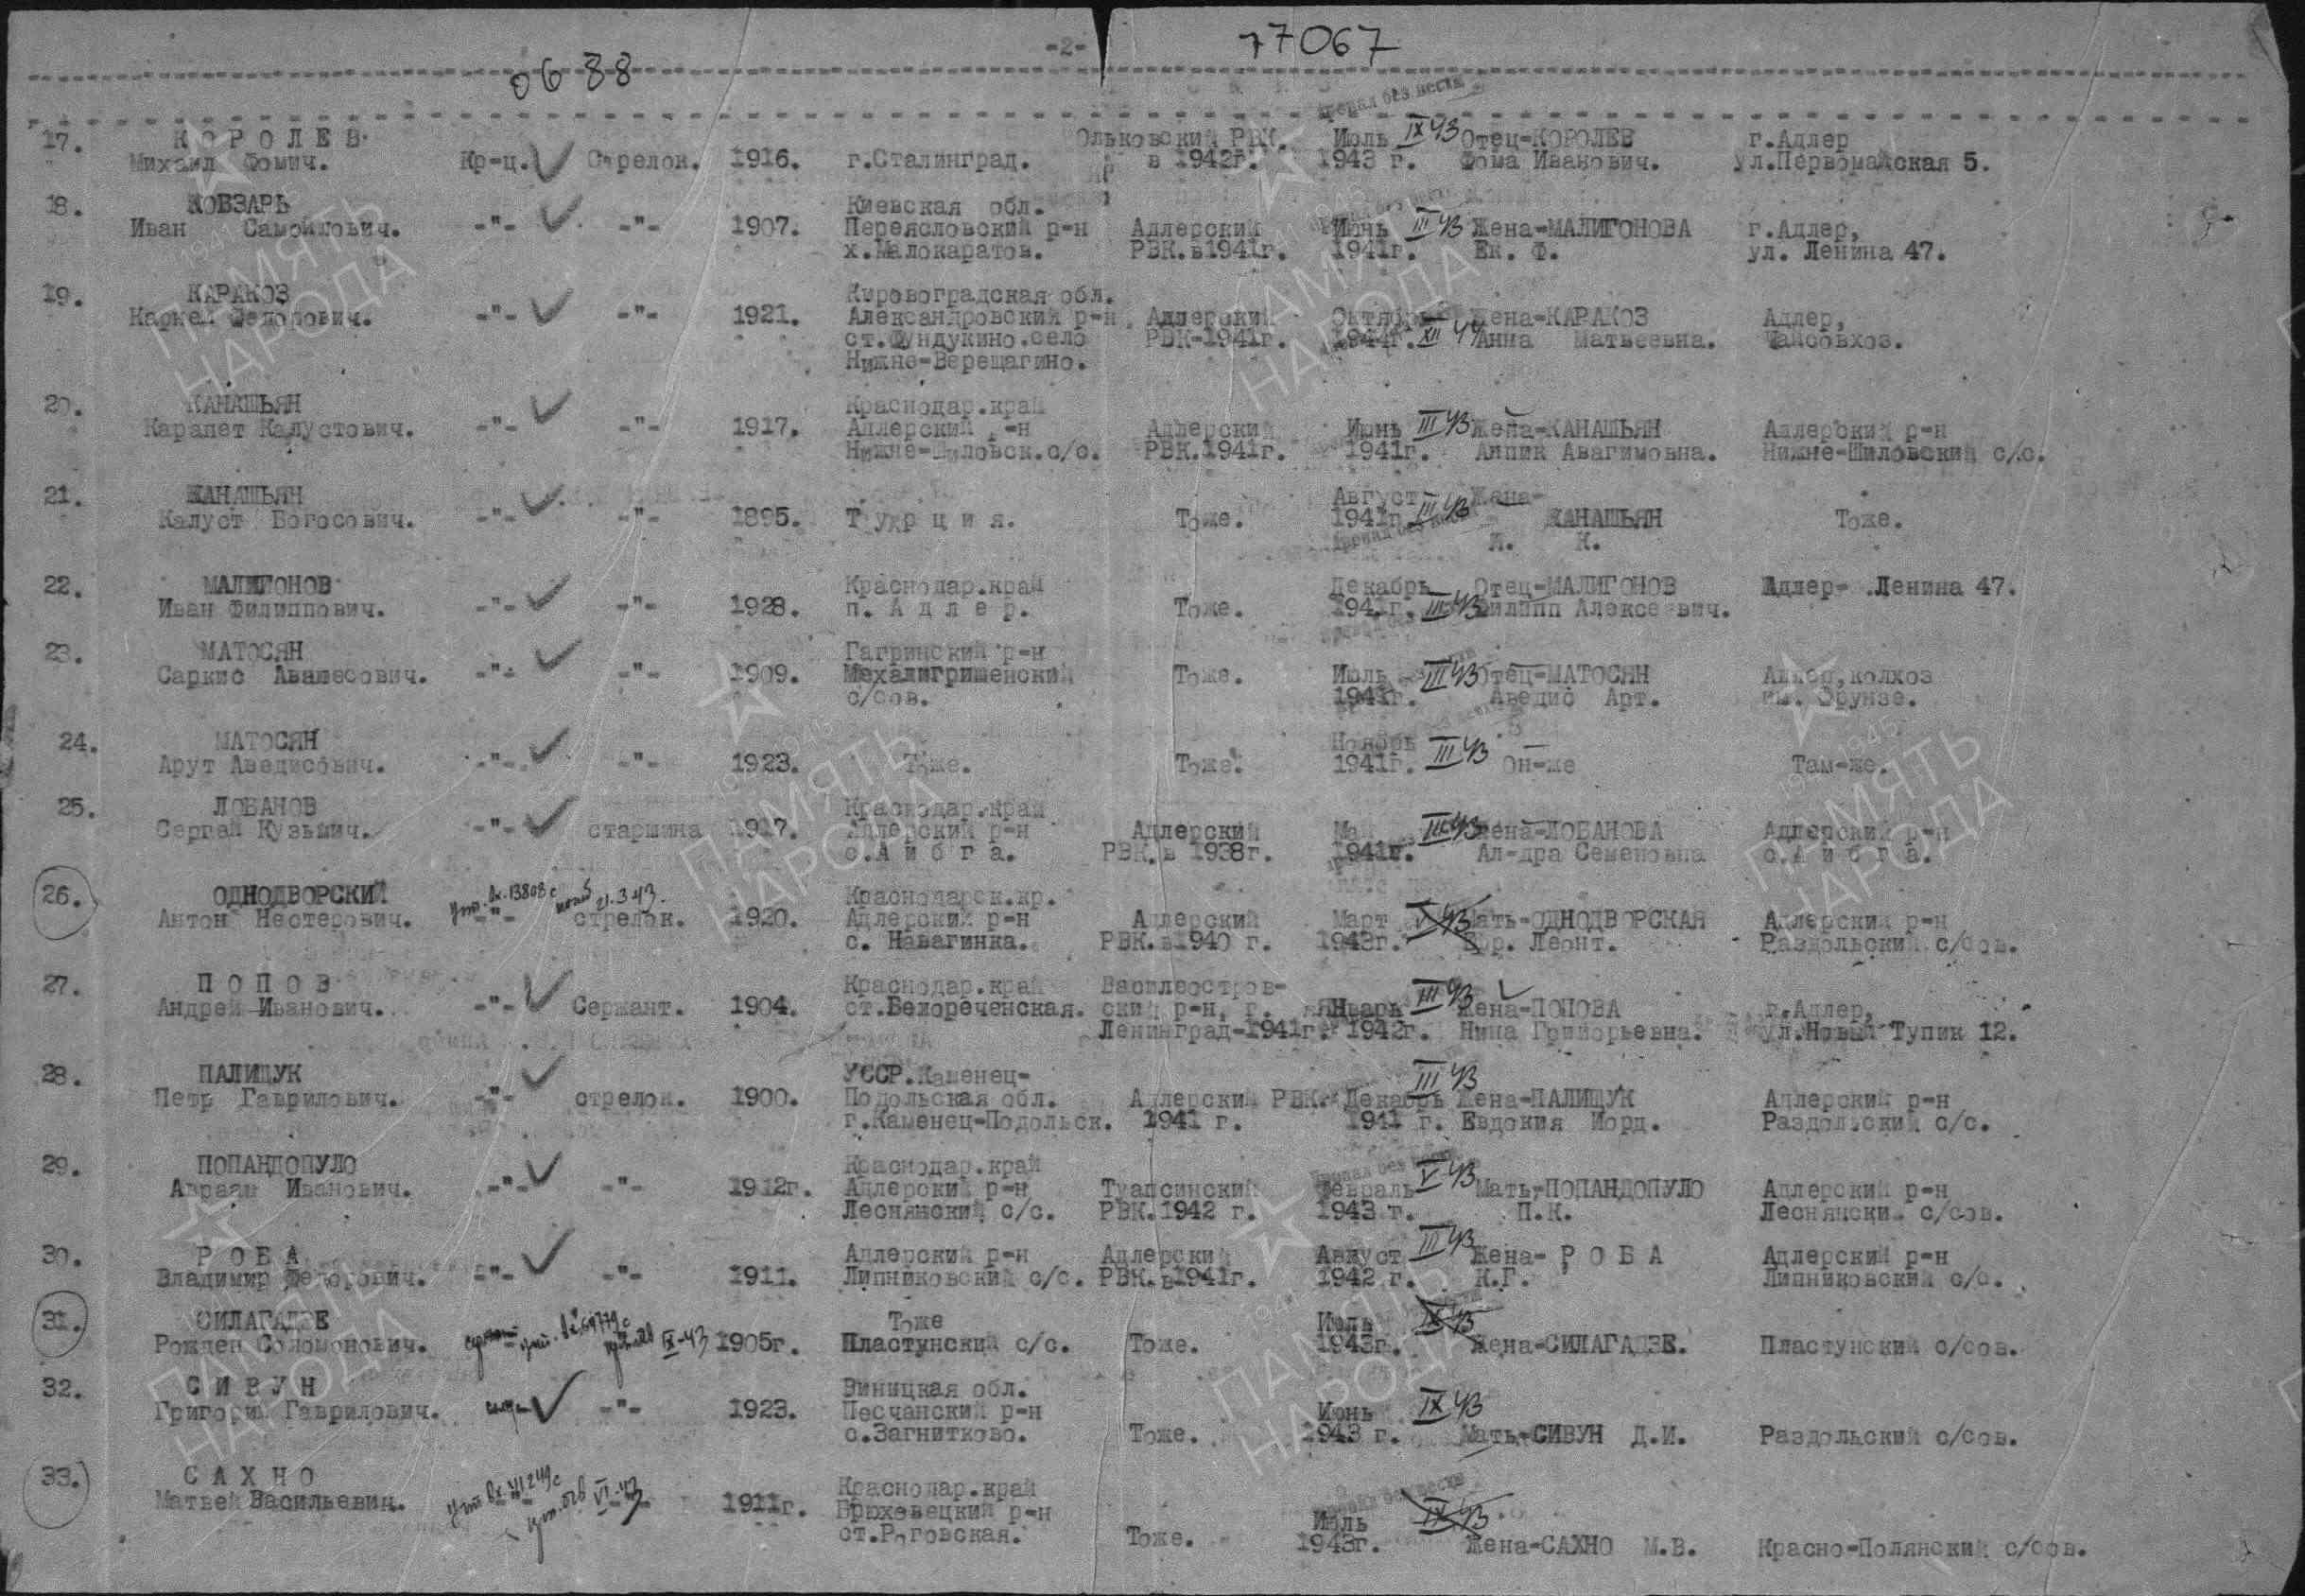 -2-
77067
0688
17. КОРОЛЕВ Михаил Фомич. Кр-ц. Стрелок. 1916. г.Сталинград. Ольховский РВК. в 1942г. Июль 1943 г. IX 43 Отец-КОРОЛЕВ Фома Иванович. г.Адлер ул.Первомайская 5.
Пропал без вести
18. КОВЗАРЬ Иван Самойлович. -"- -"- 1907. Киевская обл. Переясловский р-н х.Малокаратов. Адлерский РВК.в1941г. Июнь 1941г. III 43 Жена-МАЛИГОНОВА Ек. Ф. г.Адлер, ул. Ленина 47.
19. КАРАКОЗ Карней Федорович. -"- -"- 1921. Кировоградская обл. Александровский р-н ст.Фундукино.село Нижне-Верещагино. Адлерский РВК-1941г. Октябрь 1944г. XII 44 Жена-КАРАКОЗ Анна Матвеевна. Адлер, Чайсовхоз.
20. КАНАШЬЯН Карапет Калустович. -"- -"- 1917. Краснодар.край Адлерский р-н Нижне-Шиловск.с/с. Адлерский РВК.1941г. Июнь 1941г. III 43 Жена-КАНАШЬЯН Аипик Авагимовна. Адлерский р-н Нижне-Шиловский с/с.
21. КАНАШЬЯН Калуст Богосович. -"- -"- 1895. Турция. Тоже. Август 1941г. III 43 Жена- КАНАШЬЯН К. Тоже.
Пропал без вести
22. МАЛИГОНОВ Иван Филиппович. -"- -"- 1928. Краснодар.край п. Адлер. Тоже. Декабрь 1941г. III 43 Отец-МАЛИГОНОВ Филипп Алексеевич. Адлер- Ленина 47.
23. МАТОСЯН Саркис Авашесович. -"- -"- 1909. Гагринский р-н Мехалигришенский с/сов. Тоже. Июль 1941г. III 43 Отец-МАТОСЯН Аведис Арт. Адлер,колхоз им. Фрунзе.
24. МАТОСЯН Арут Аведисович. -"- -"- 1923. Тоже. Тоже. Ноябрь 1941г. III 43 Он-же Там-же.
25. ЛОБАНОВ Сергей Кузьмич. -"- старшина 1917. Краснодар.край Адлерский р-н с.Аибга. Адлерский РВК.в 1938г. Май 1941г. III 43 Жена-ЛОБАНОВА Ал-дра Семеновна Адлерский р-н с.Аибга.
26. ОДНОДВОРСКИЙ Антон Нестерович. -"- вх.13808с погиб 21.3.43. стрелок. 1920. Краснодарск.кр. Адлерский р-н с. Навагинка. Адлерский РВК.в1940 г. Март 1943г. V 43 Мать-ОДНОДВОРСКАЯ Леонт. Адлерский р-н Раздольский с/сов.
27. ПОПОВ Андрей Иванович. -"- Сержант. 1904. Краснодар.край ст.Белореченская. Василеостров- ский р-н, г. Ленинград-1941г. Январь 1942г. III 43 Жена-ПОПОВА Нина Григорьевна. г.Адлер, ул.Новый Тупик 12.
28. ПАЛИЩУК Петр Гаврилович. -"- стрелок. 1900. УССР.Каменец- Подольская обл. г.Каменец-Подольск. Адлерский РВК. 1941 г. Декабрь 1941 г. III 43 Жена-ПАЛИЩУК Евдокия Иорд. Адлерский р-н Раздольский с/с.
29. ПОПАНДОПУЛО Авраам Иванович. -"- -"- 1912г. Краснодар.край Адлерский р-н Леснянский с/с. Туапсинский РВК.1942 г. Февраль 1943 г. V 43 Мать-ПОПАНДОПУЛО П.К. Адлерский р-н Леснянски. с/сов.
30. РОБА Владимир Федорович. -"- -"- 1911. Адлерский р-н Липниковский с/с. Адлерский РВК.в1941г. Август 1942 г. III 43 Жена- РОБА К.Г. Адлерский р-н Липниковский с/с.
31. СИЛАГАДЗЕ Рожден Соломонович. IX-43 1905г. Тоже Пластунский с/с. Тоже. Июль 1943г. IX 43 Жена-СИЛАГАДЗЕ. Пластунский с/сов.
32. СИВУН Григорий Гаврилович. -"- 1923. Виницкая обл. Песчанский р-н с.Загнитково. Тоже. Июнь 1943 г. IX 43 Мать-СИВУН Д.И. Раздольский с/сов.
33. САХНО Матвей Васильевич. VI-43 1911г. Краснодар.край Брюховецкий р-н ст.Роговская. Тоже. Июль 1943г. IX 43 Жена-САХНО М.В. Красно-Полянский с/сов.
ПАМЯТЬ НАРОДА
1941 1945